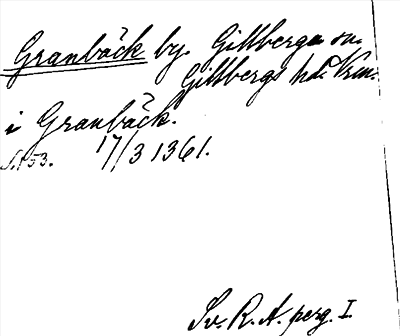 Granbäck by. Gillberga sn.
Gillbergs hd. Vrm.
i Granbäck.
s. 153. 17/3 1361.
Sv. R. A. perg. I.